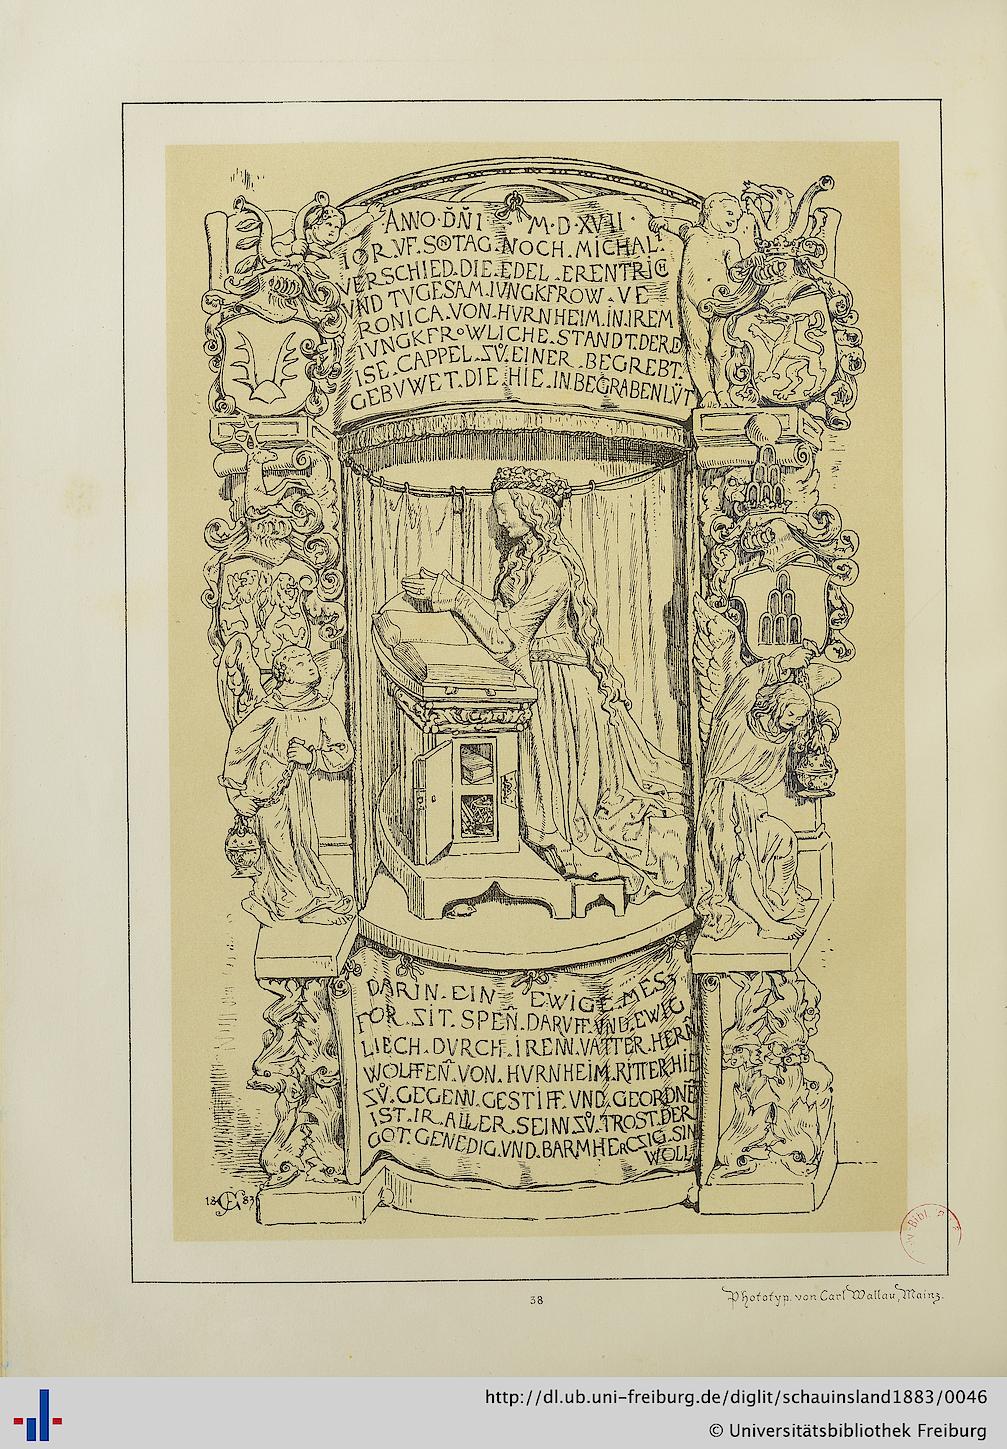 ANNO·D̄N̄I M·D·XVII·
IOR.VF.SOTAG.NOCH.MICHAL.
VERSCHIED.DIE.EDEL.ERENTRIC
VND TVGESAM.IVNGKFROW.VE
RONICA.VON.HVRNHEIM.IN.IREM
IVNGKFROWLICHE.STANDT.DER.D
ISE.CAPPEL.ZV̊.EINER.BEGREBT.
GEBVWET.DIE.HIE.IN.BEGRABEN LŰT
DARIN.EIN EWIGE.MES
FOR.ZIT.SPEN̄.DARVFF.VND.EWIG
LIECH.DVRCH.IRENN.VATTER.HERN̄
WOLFFEN̄.VON.HVRNHEIM.RITTER.HIE
ZV̊.GEGENN.GESTIFF.VND.GEORDNE
IST.IR.ALLER.SEINN.ZV̊.TROST.DER
GOT.GENEDIG.VND.BARMHERCZIG.SIN
WOLL
18 83
38
Phototyp. von Carl Wallau, Mainz.
http://dl.ub.uni-freiburg.de/diglit/schauinsland1883/0046
© Universitätsbibliothek Freiburg